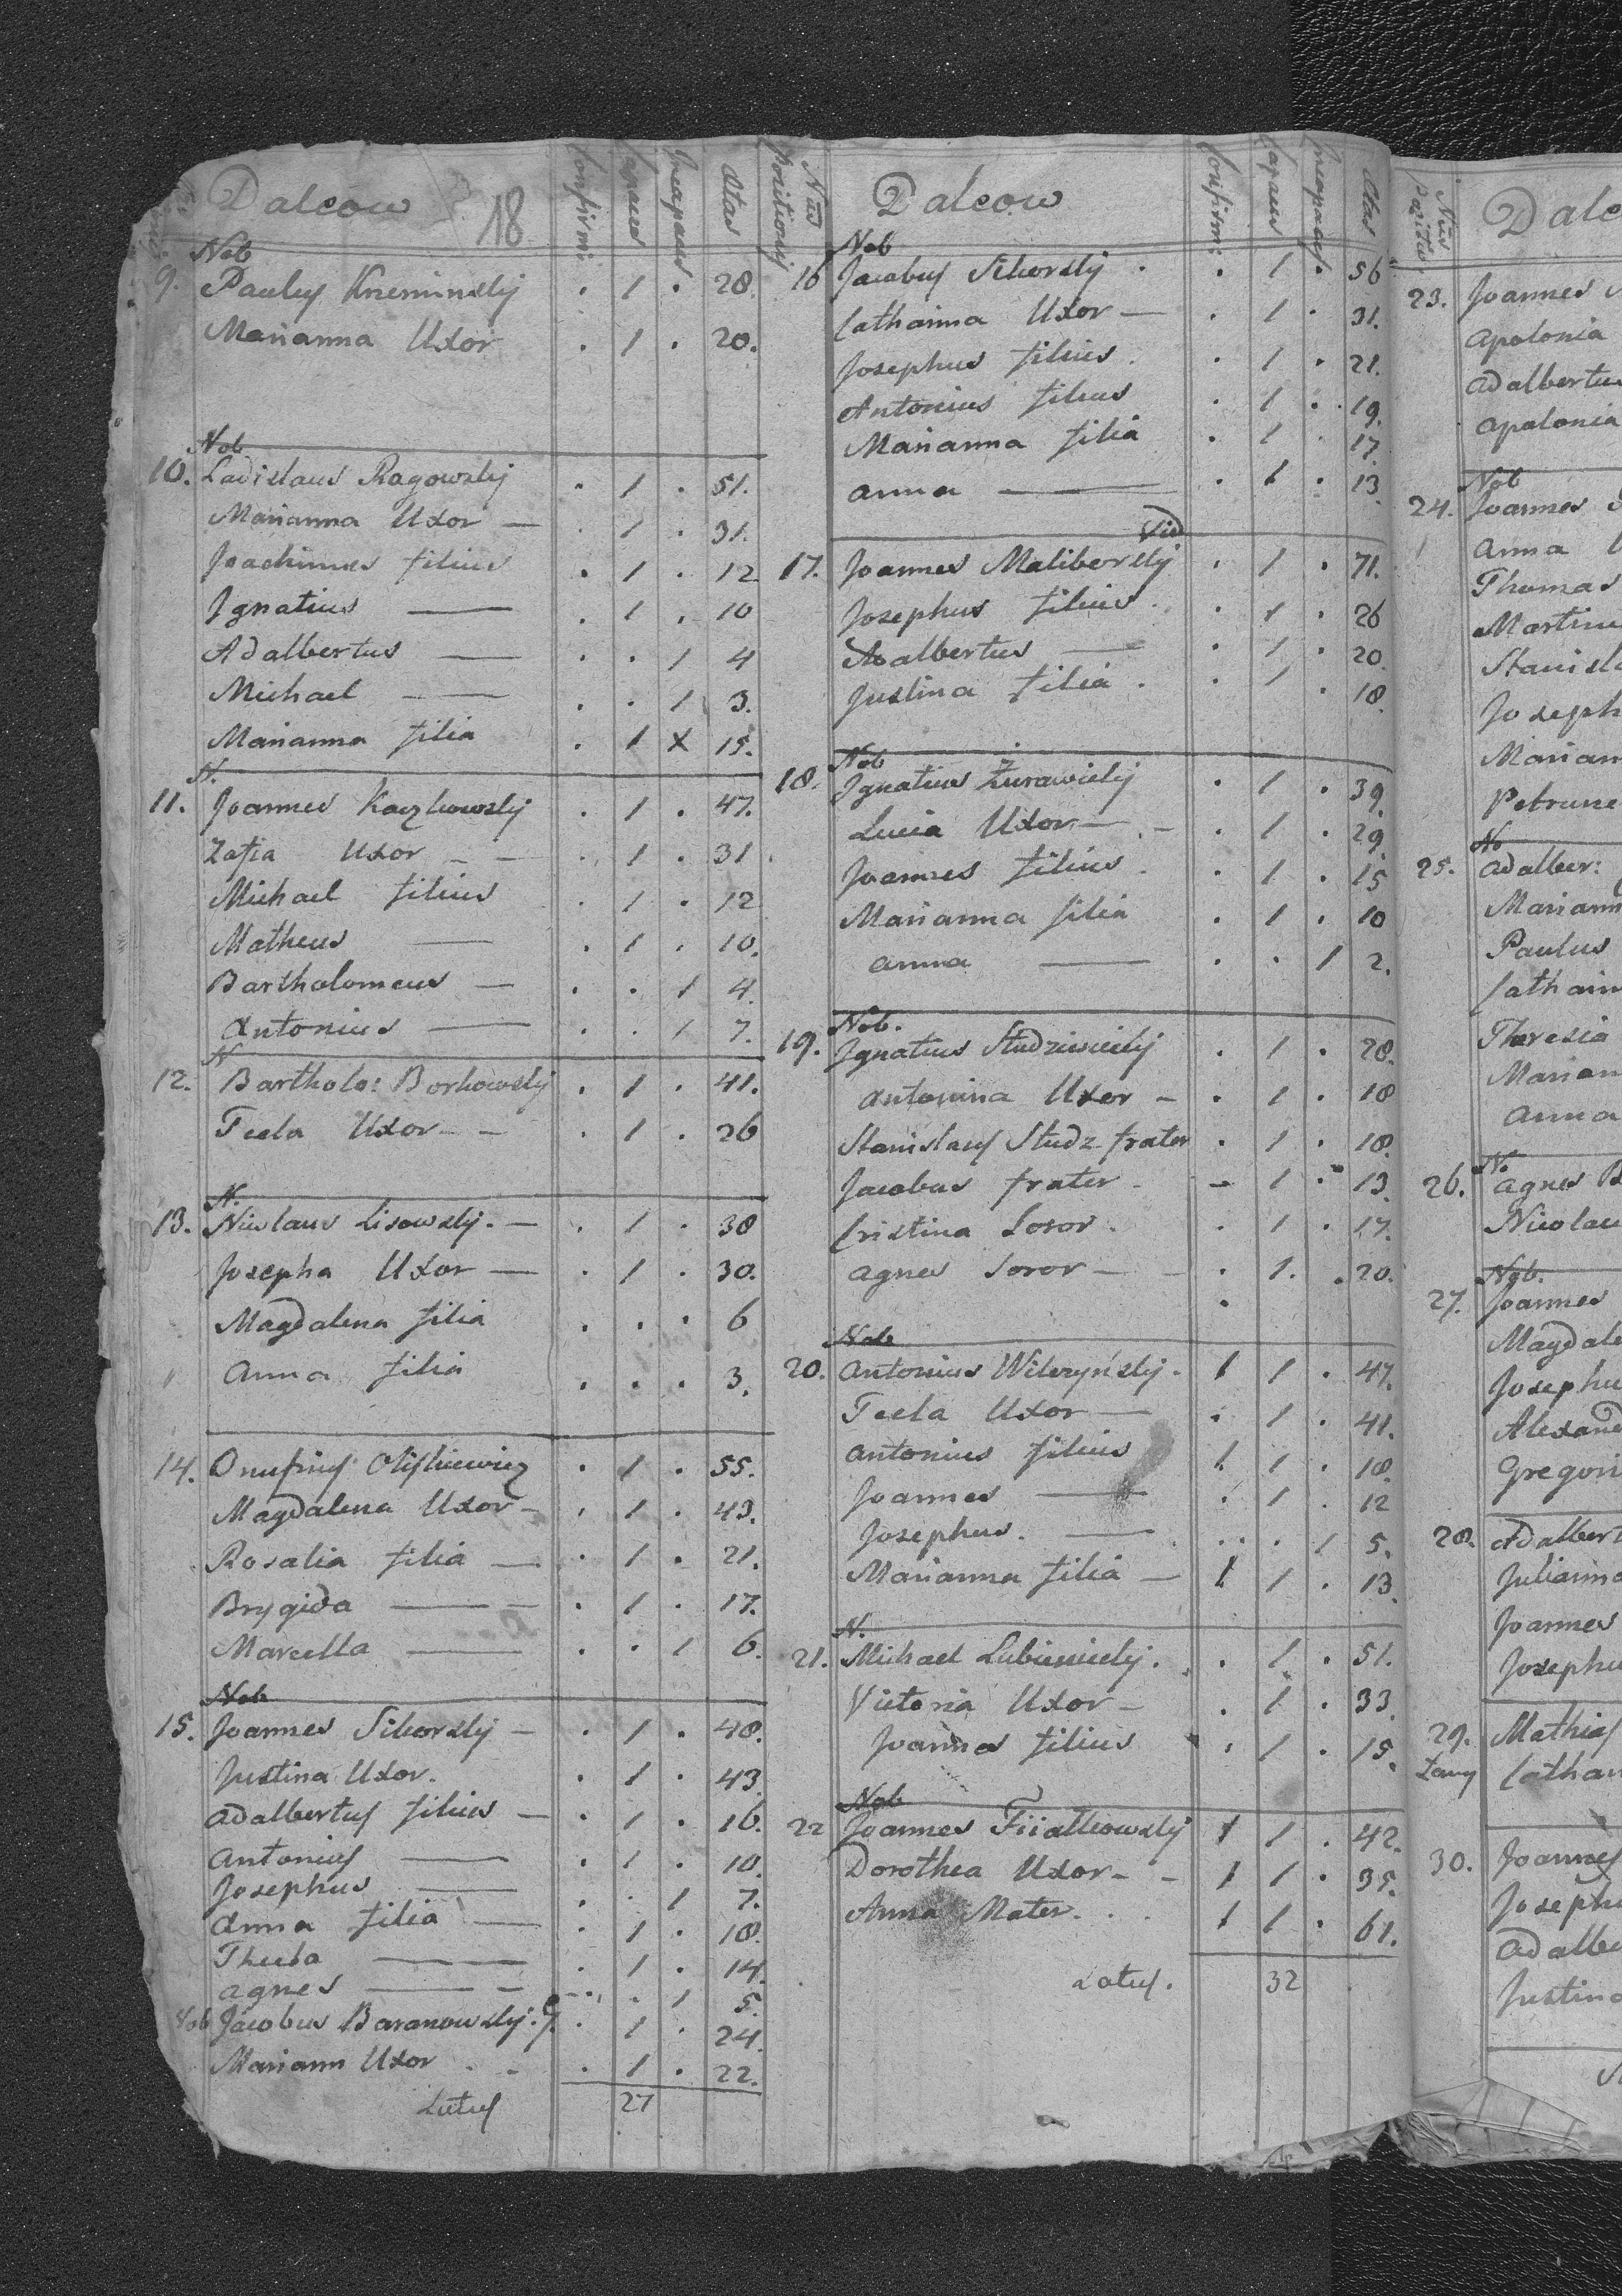 Dalcow 18 Confirm: Capaces Incapaces Ætas
Nob
9. Paulus Krzeminskij . 1 . 28.
Marianna Uxor . 1 . 20.
Nob
10. Ladislaus Ragowskij . 1 . 51.
Marianna Uxor — . 1 . 31.
Joachimus filius . 1 . 12
Ignatius — . 1 . 10
Adalbertus — . . 1 4
Michael — . . 1 3.
Marianna filia . 1 X 15.
N.
11. Joannes Kaczkowskij . 1 . 47.
Zofia Uxor — . 1 . 31.
Michael filius . 1 . 12
Matheus — . 1 . 10.
Bartholomeus — . . 1 4.
Antonius — . . 1 7.
N
12. Bartholo: Borkowskij . 1 . 41.
Tecla Uxor — . 1 . 26
N.
13. Nicolaus Lisowskij. — . 1 . 38
Josepha Uxor — . 1 . 30.
Magdalena filia . . . 6
Anna filia . . . 3.
14. Onufrius . 1 . 55.
Magdalena Uxor — . 1 . 43.
Rosalia filia — . 1 . 21.
Brygida — . 1 . 17.
Marcella — . . 1 6.
Nob
15. Joannes Sikorskij — . 1 . 48.
Justina Uxor. . 1 . 43
Adalbertus filius — . 1 . 16.
Antonius — . 1 . 10.
Josephus — . . 1 7.
Anna filia — . 1 . 18.
Thecla — . 1 . 14.
Agnes — . . 1 5.
Nob Jacobus Baranowskij . 1 . 24
Mariann Uxor . . . 1 . 22.
Latus 27
Nus Positionis Dalcow Confirm: Capaces Incapaces Ætas
Nob
16 Jacobus Sikorskij . . 1 . 56
Catharina Uxor — . 1 . 31.
Josephus filius . . 1 . 21.
Antonius filius . 1 . 19.
Marianna filia . 1 . 17.
Anna — . 1 . 13.
Vid
17. Joannes Maliborskij . 1 . 71.
Josephus filius . . 1 . 26
Adalbertus — . 1 . 20.
Justina filia . . 1 . 18.
Nob
18. Ignatius Żurawickij . 1 . 39.
Lucia Uxor — . 1 . 29.
Joannes filius . . 1 . 15
Marianna filia . 1 . 10
Anna — . . 1 2.
Nob.
19. Ignatius . 1 . 28.
Antonina Uxor — . 1 . 18
Stanislaus Studz frater . 1 . 18.
Jacobus frater — 1 . 13.
Cristina Soror . . 1 . 17.
Agnes Soror — . 1. . 20.
Nob
20. Antonius Wilczyńskij. 1 1 . 47.
Tecla Uxor — . 1 . 41.
Antonius filius 1 1 . 18.
Joannes — . 1 . 12
Josephus. — . . 1 5.
Marianna filia — 1 1 . 13.
N.
21. Michael Lubienieckij. . 1 . 51.
Victoria Uxor — . 1 . 33.
Joannes filius . 1 . 15.
Nob
22 Joannes Fiiałkowskij 1 1 . 42.
Dorothea Uxor — 1 1 . 35.
Anna Mater. . . 1 1 . 61.
Latus. 32
Nus Dalc
23. Joannes
Apolonia
Adalbertus
Apolonia
Nob
24. Joannes
Anna
Thomas
Martinu
Stanisla
Joseph
Mariann
Petrune
No
25. Adalber:
Mariann
Paulus
Catharin
Theresia
Marian
Anna
N.
26. Agnes B
Nicolau
Nob.
27. Joannes
Magdale
Josephu
Alexand
Gregori
28. Adalbert
Julianna
Joannes
Josephu
29. Mathias
Cathar
30. Joannes
Joseph
Adalbe
Justina